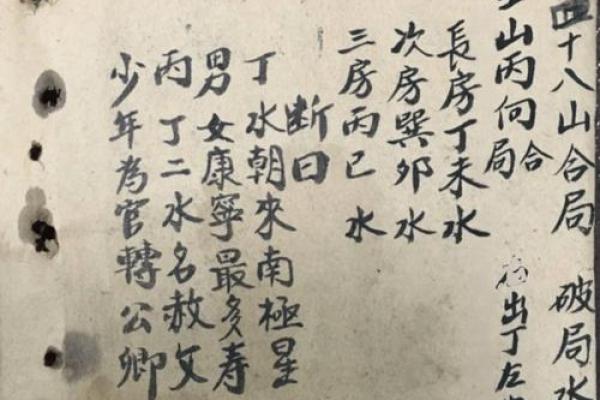 四十八山合局 破局水
山丙向合局 出丁左
長房丁未水
次房巽卯水
三房丙巳水
断曰
丁水朝來南極星
男女康寧最多寿
丙丁二水名赦文
少年為官轉公卿